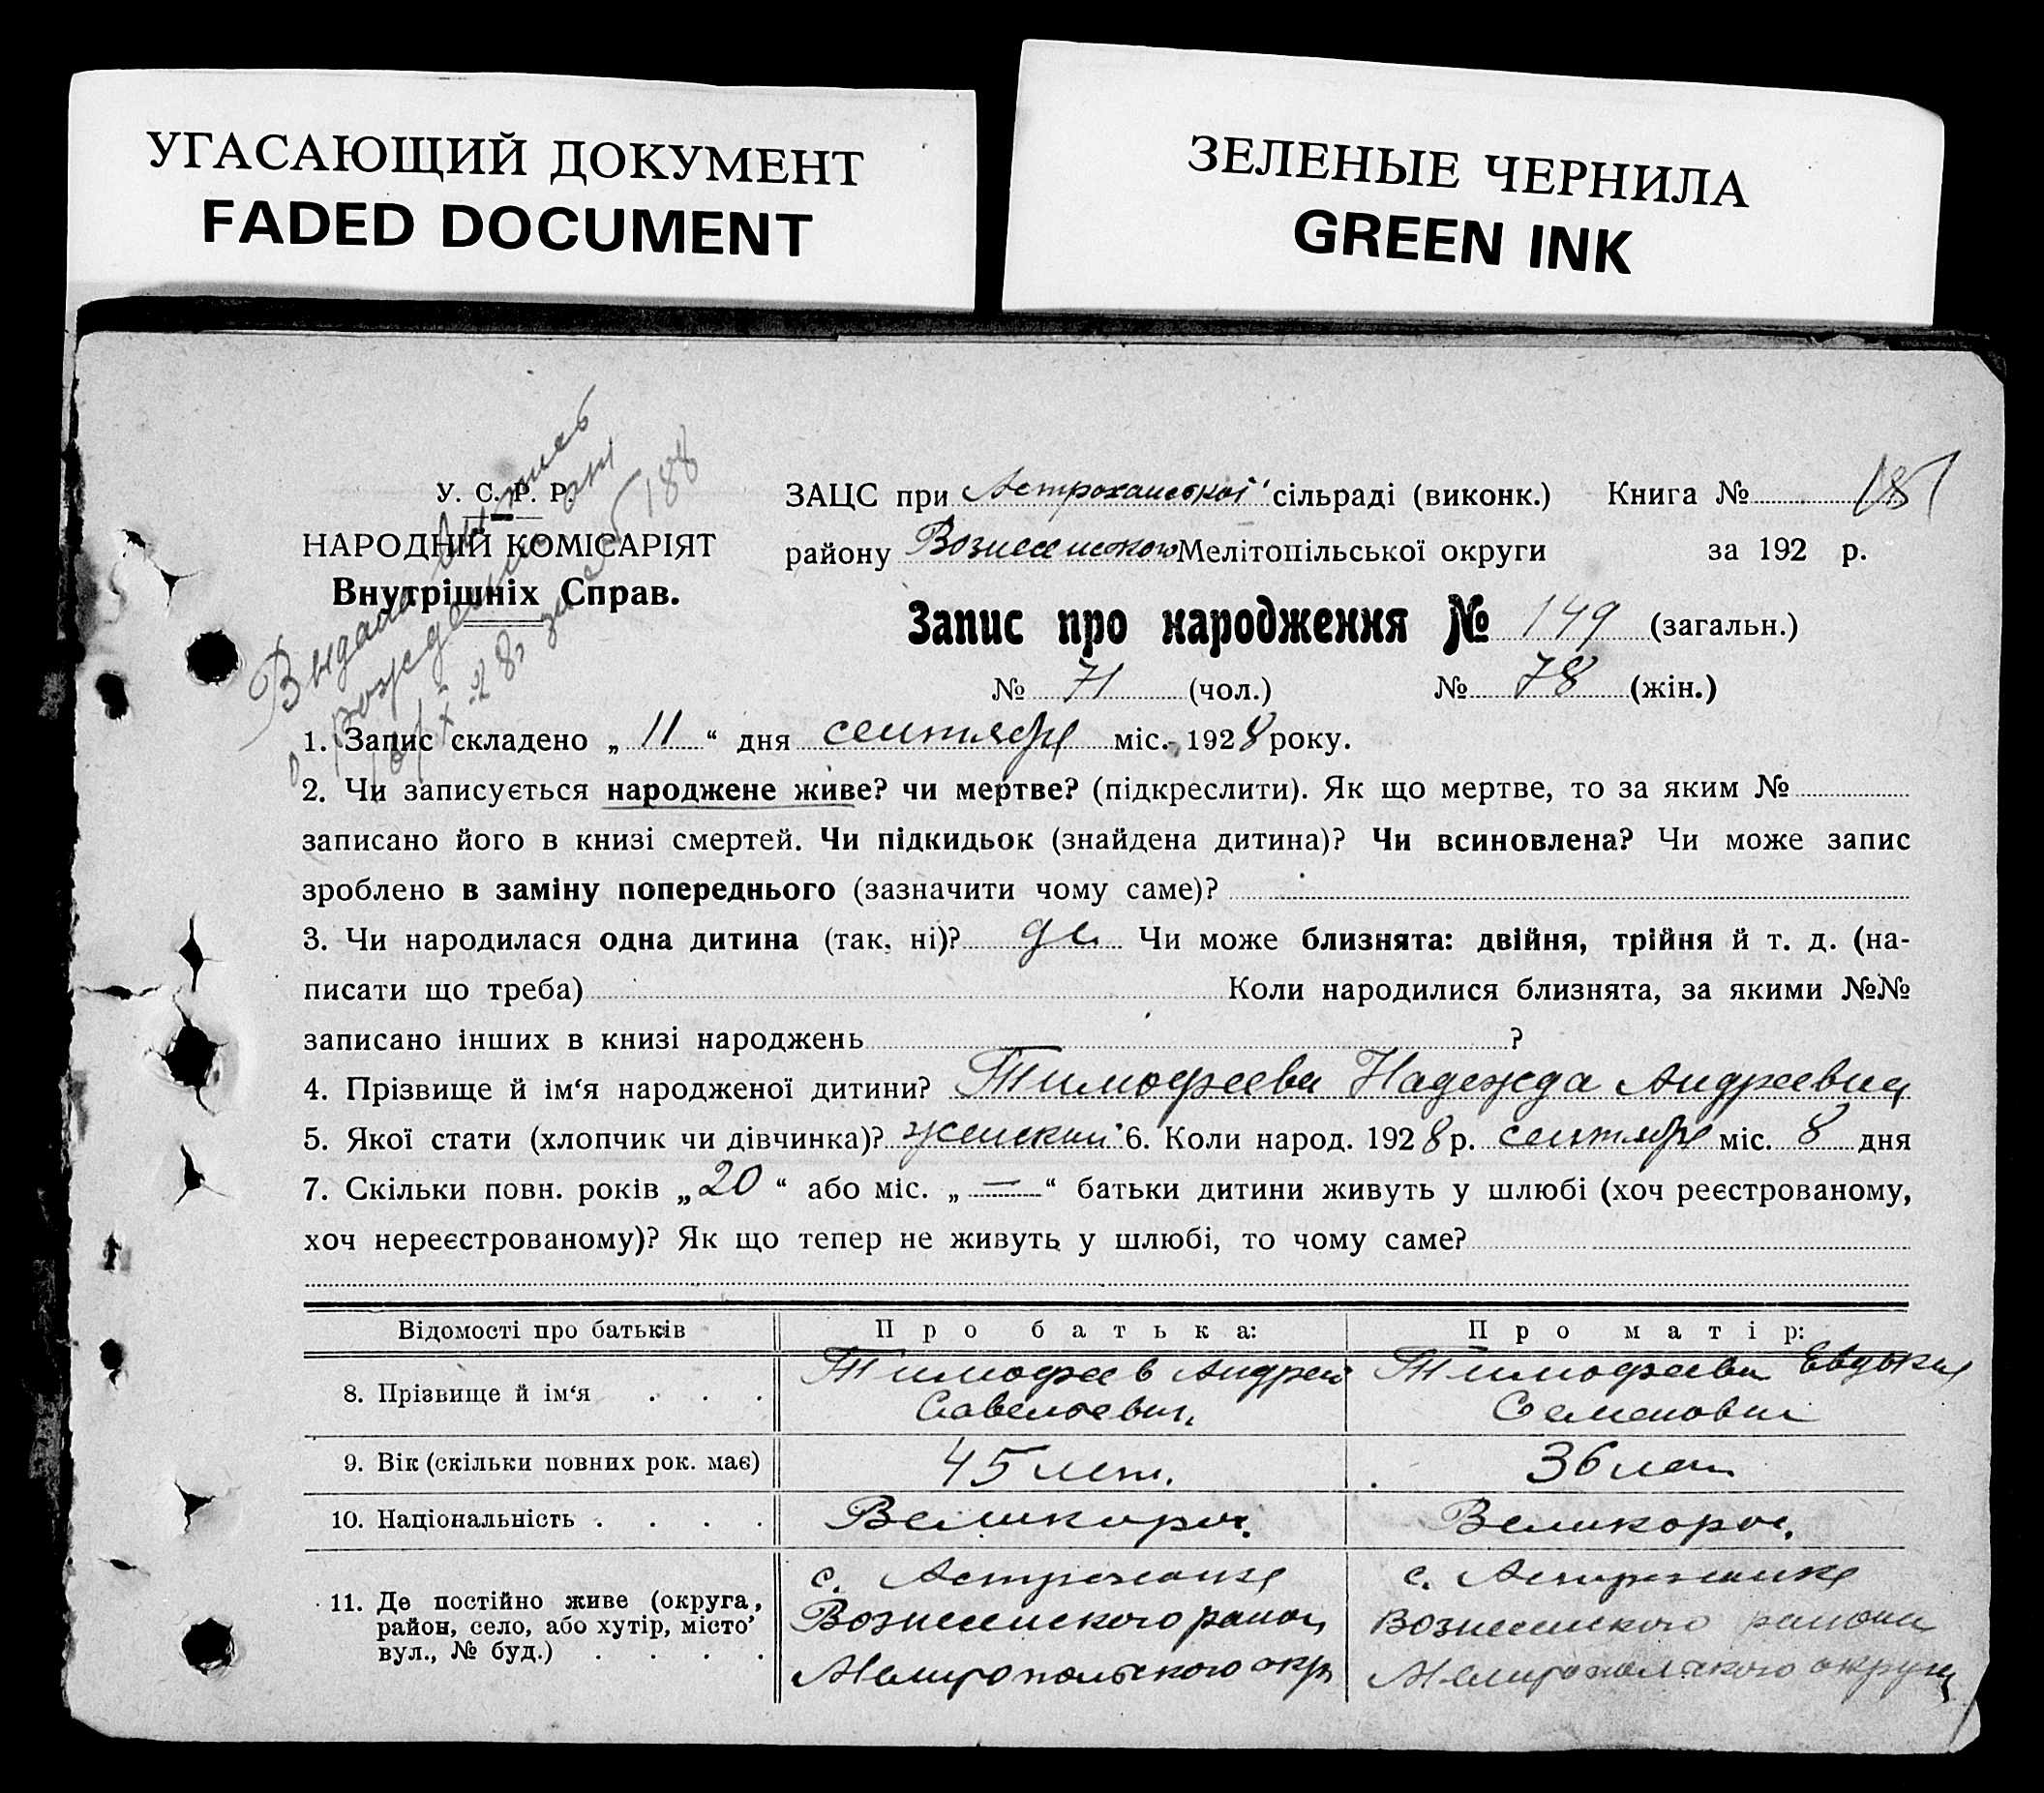 УГАСАЮЩИЙ ДОКУМЕНТ
FADED DOCUMENT
ЗЕЛЕНЫЕ ЧЕРНИЛА
GREEN INK
У. С. Р. Р.
НАРОДНІЙ КОМІСАРІЯТ
Внутрішніх Справ.
ЗАЦС при Астраханської сільраді (виконк.) Книга №
району Вознесенского Мелітопільської округи за 192 р.
Запис про народження № 149 (загальн.)
№ 71 (чол.) № 78 (жін.)
1. Запис складено „ 11 “ дня сентября міс. 1928 року.
2. Чи записується народжене живе? чи мертве? (підкреслити). Як що мертве, то за яким №
записано його в книзі смертей. Чи підкидьок (знайдена дитина)? Чи всиновлена? Чи може запис
зроблено в заміну попереднього (зазначити чому саме)?
3. Чи народилася одна дитина (так, ні)? да Чи може близнята: двійня, трійня й т. д. (на-
писати що треба) Коли народилися близнята, за якими №№
записано інших в книзі народжень ?
4. Прізвище й ім‘я народженої дитини? Тимофеева Надежда Андреевна
5. Якої стати (хлопчик чи дівчинка)? женский 6. Коли народ. 1928 р. сентября міс. 8 дня
7. Скільки повн. років „ 20 “ або міс. „ — “ батьки дитини живуть у шлюбі (хоч реєстрованому,
хоч нереєстрованому)? Як що тепер не живуть у шлюбі, то чому саме?
Відомості про батьків Про батька: Про матір:
8. Прізвище й ім‘я . . . Тимофеев Андрей Тимофеева Евдокия
Савельевич Семеновна
9. Вік (скільки повних рок. має) 45 лет. 36 лет
10. Національність . . . . Великорос. Великорос.
11. Де постійно живе (округа, район, село, або хутір, місто’ вул., № буд.) . . . .
с. Астраханка с. Астраханка
Вознесенского района Вознесенского района
Мелитопольского окр Мелитопольского округа
Выдана выпись
о рождении